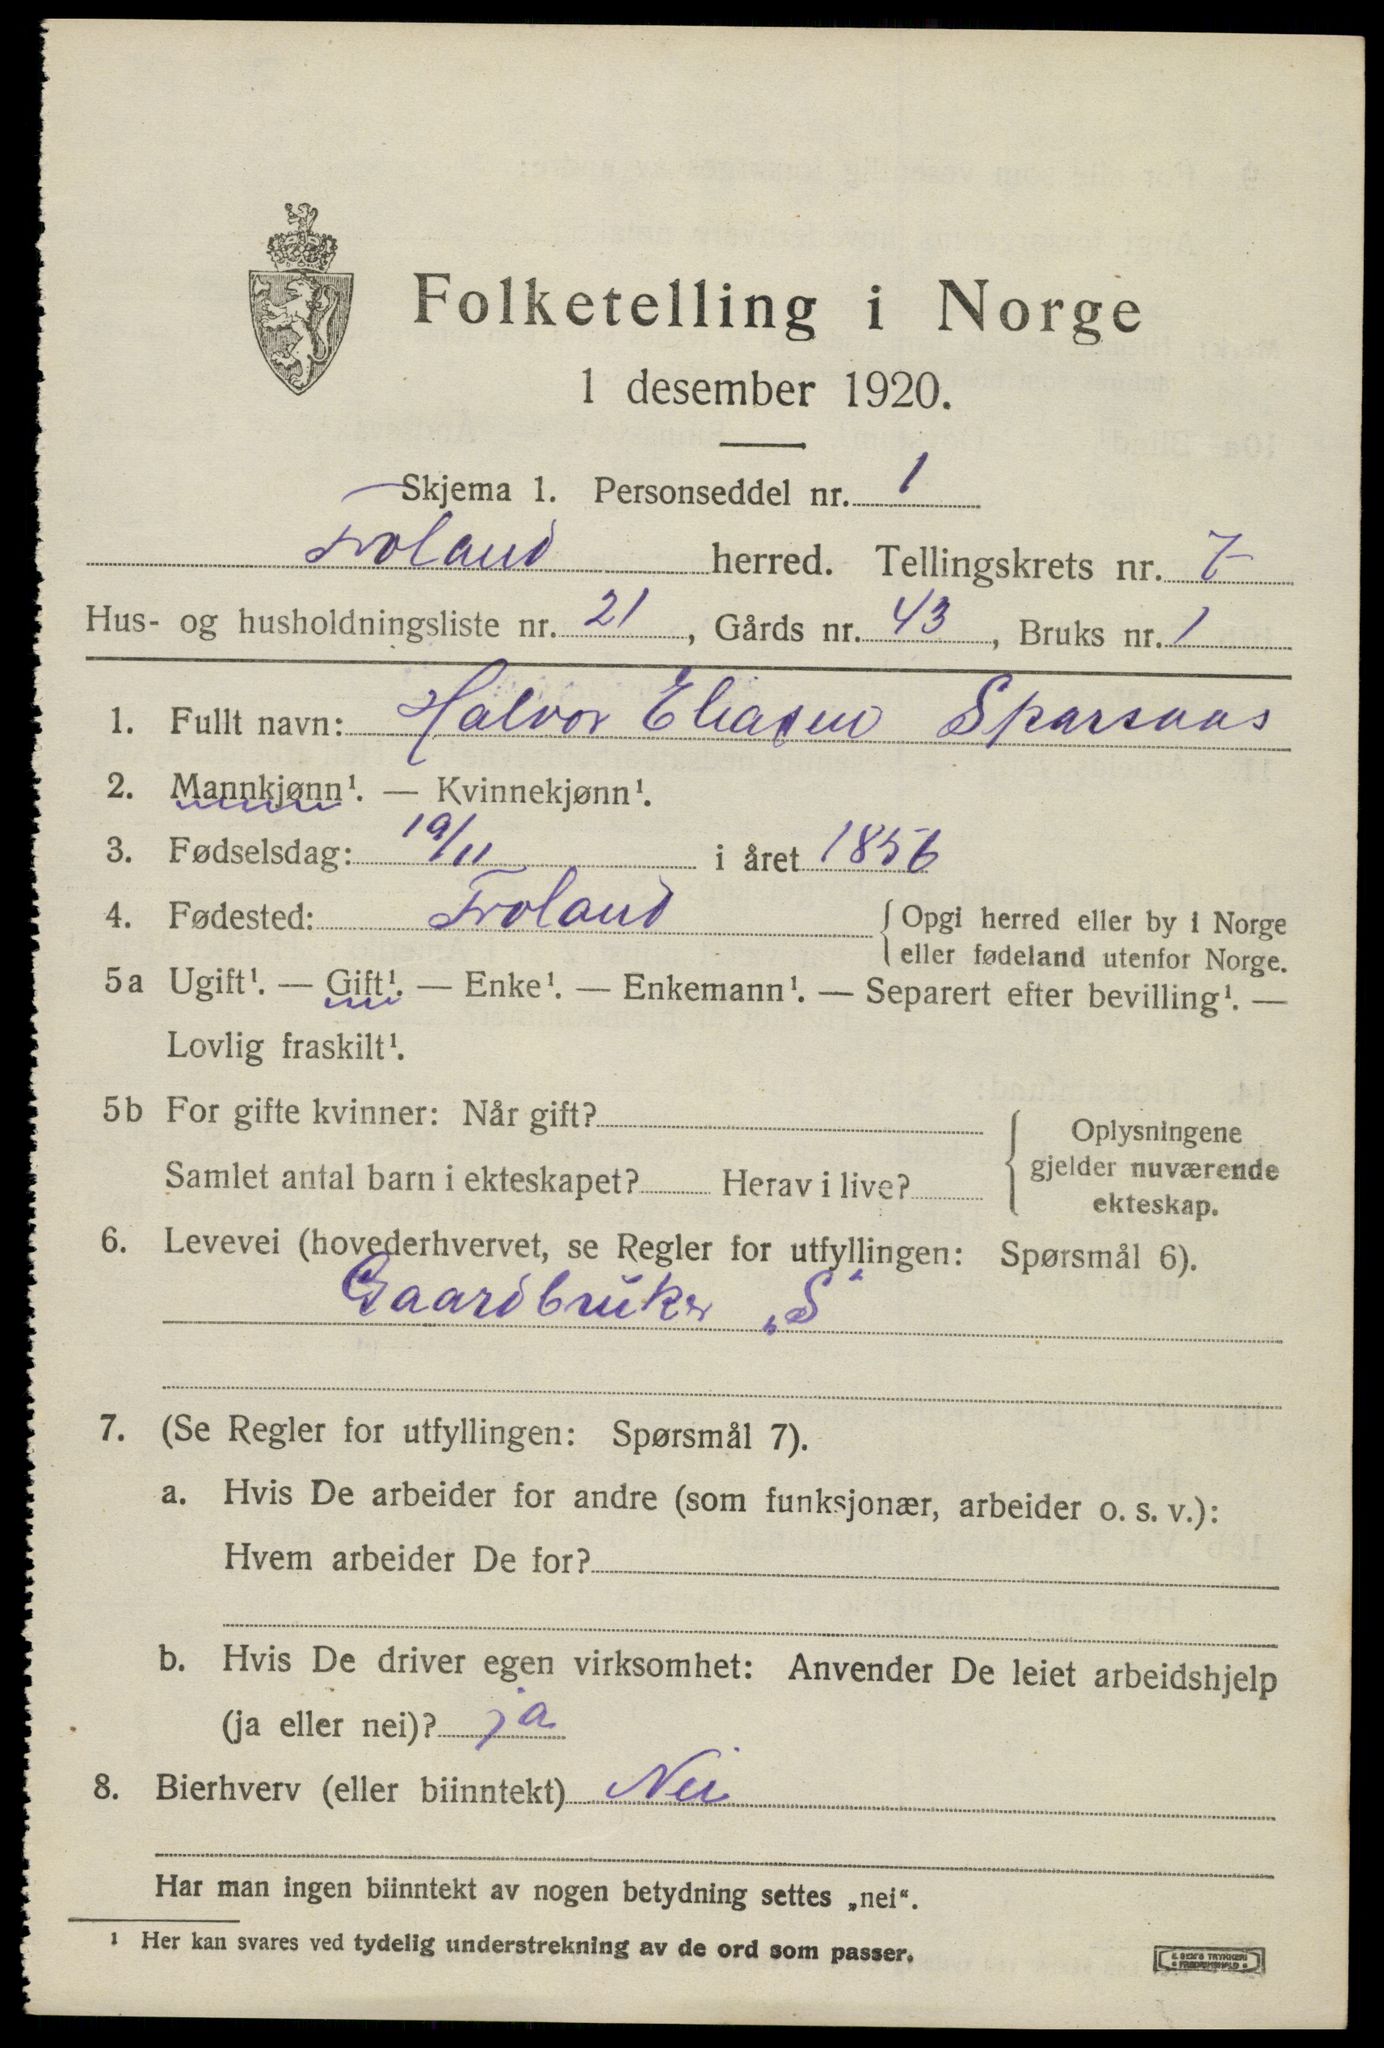 Folketelling i Norge
1 desember 1920.
Skjema 1. Personseddel nr. 1
Froland herred. Tellingskrets nr. 7
Hus- og husholdningsliste nr. 21, Gårds nr. 43, Bruks nr. 1
1. Fullt navn: Halvor Eliasen Sparsaas
2. Mannkjønn¹. — Kvinnekjønn¹.
3. Fødselsdag: 19/11 i året 1856
4. Fødested: Froland { Opgi herred eller by i Norge
eller fødeland utenfor Norge.
5a Ugift¹. — Gift¹. — Enke¹. — Enkemann¹. — Separert efter bevilling¹. —
Lovlig fraskilt¹.
5b For gifte kvinner: Når gift? { Oplysningene
gjelder nuværende
ekteskap.
Samlet antal barn i ekteskapet? Herav i live?
6. Levevei (hovederhvervet, se Regler for utfyllingen: Spørsmål 6).
Gaardbruker „S"
7. (Se Regler for utfyllingen: Spørsmål 7).
a. Hvis De arbeider for andre (som funksjonær, arbeider o. s. v.):
Hvem arbeider De for?
b. Hvis De driver egen virksomhet: Anvender De leiet arbeidshjelp
(ja eller nei)? ja
8. Bierhverv (eller biinntekt) Nei
Har man ingen biinntekt av nogen betydning settes „nei“.
¹ Her kan svares ved tydelig understrekning av de ord som passer.
TRYKKERI
FREDRIKSHALD